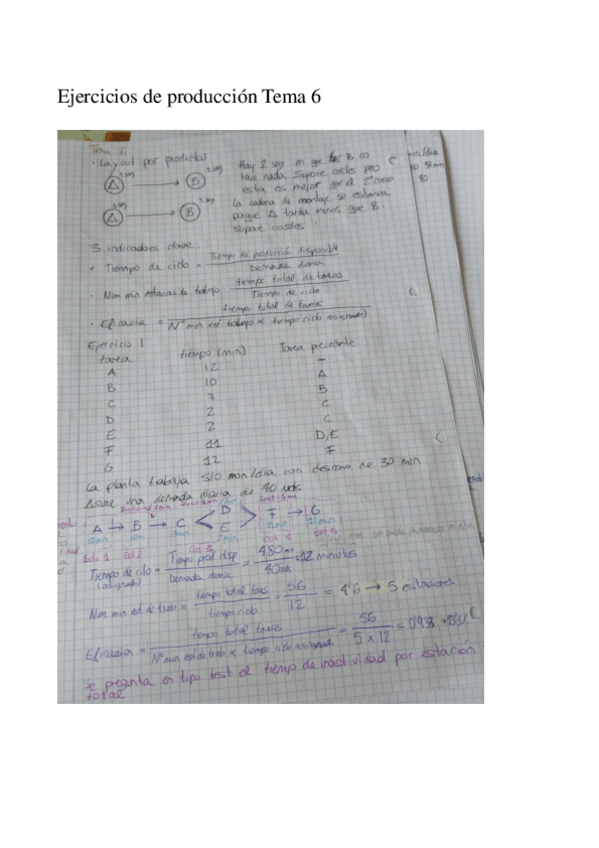 Ejercicios de producción Tema 6
Tema 6
• Layout por productos
A → B
A → B
Hay 2 seg en que B no
hace nada. Supone costes pero
esta es mejor que el 2º
la cadena de montaje se estanca
porque A tarda menos que B.
supone costes
3 indicadores clave:
• Tiempo de ciclo = Tiempo de producción disponible / Demanda diaria
• Num min estaciones de trabajo = tiempo total de tareas / Tiempo de ciclo
• Eficacia = tiempo total de tareas / (Nº min est trabajo x tiempo ciclo asignado)
Ejercicio 1
tarea tiempo (min) Tarea precedente
A 12 —
B 10 A
C 7 B
D 2 C
E 2 C
F 11 D,E
G 12 F
La planta trabaja 510 min/día con descanso de 30 min
una demada diaria de 40 uds
A → B → C < D E > F → G
Est 1 Est 2 Est 3 Est 4 Est 5
Tiempo de ciclo (asignado) = Tiempo prod disp / Demada diaria = 480 / 40 = 12 minutos
Num min est. de trabo = tiempo total / tiempo ciclo = 56 / 12 = 4'6 → 5 estaciones
Eficacia = tiempo total tareas / Nº min est de trab x tiempo ciclo = 56 / 5 x 12
Se pregunta en tipo test el tiempo de inactividad por estación
total